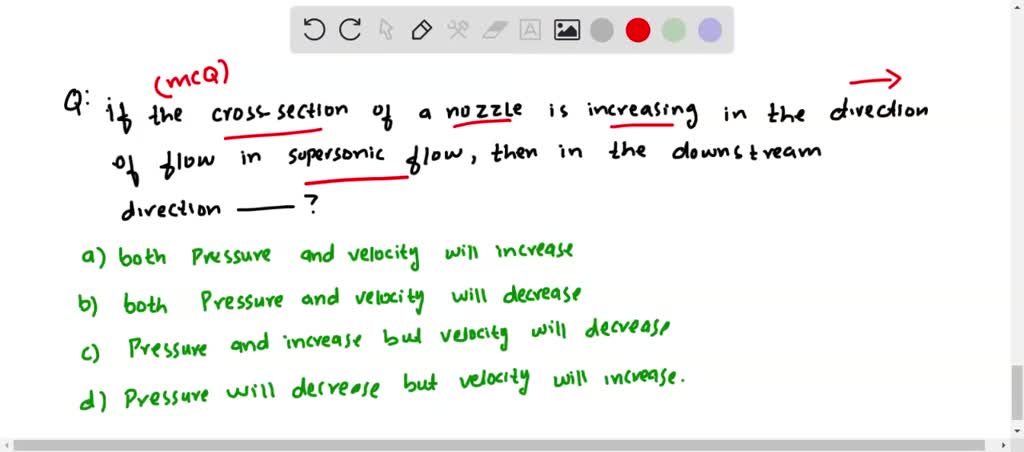 (mcQ)
Q: if the cross-section of a nozzle is increasing in the direction
of flow in supersonic flow, then in the downstream
direction —— ?
a) both Pressure and velocity will increase
b) both Pressure and velocity will decrease
c) Pressure and increase but velocity will decrease
d) Pressure will decrease but velocity will increase.